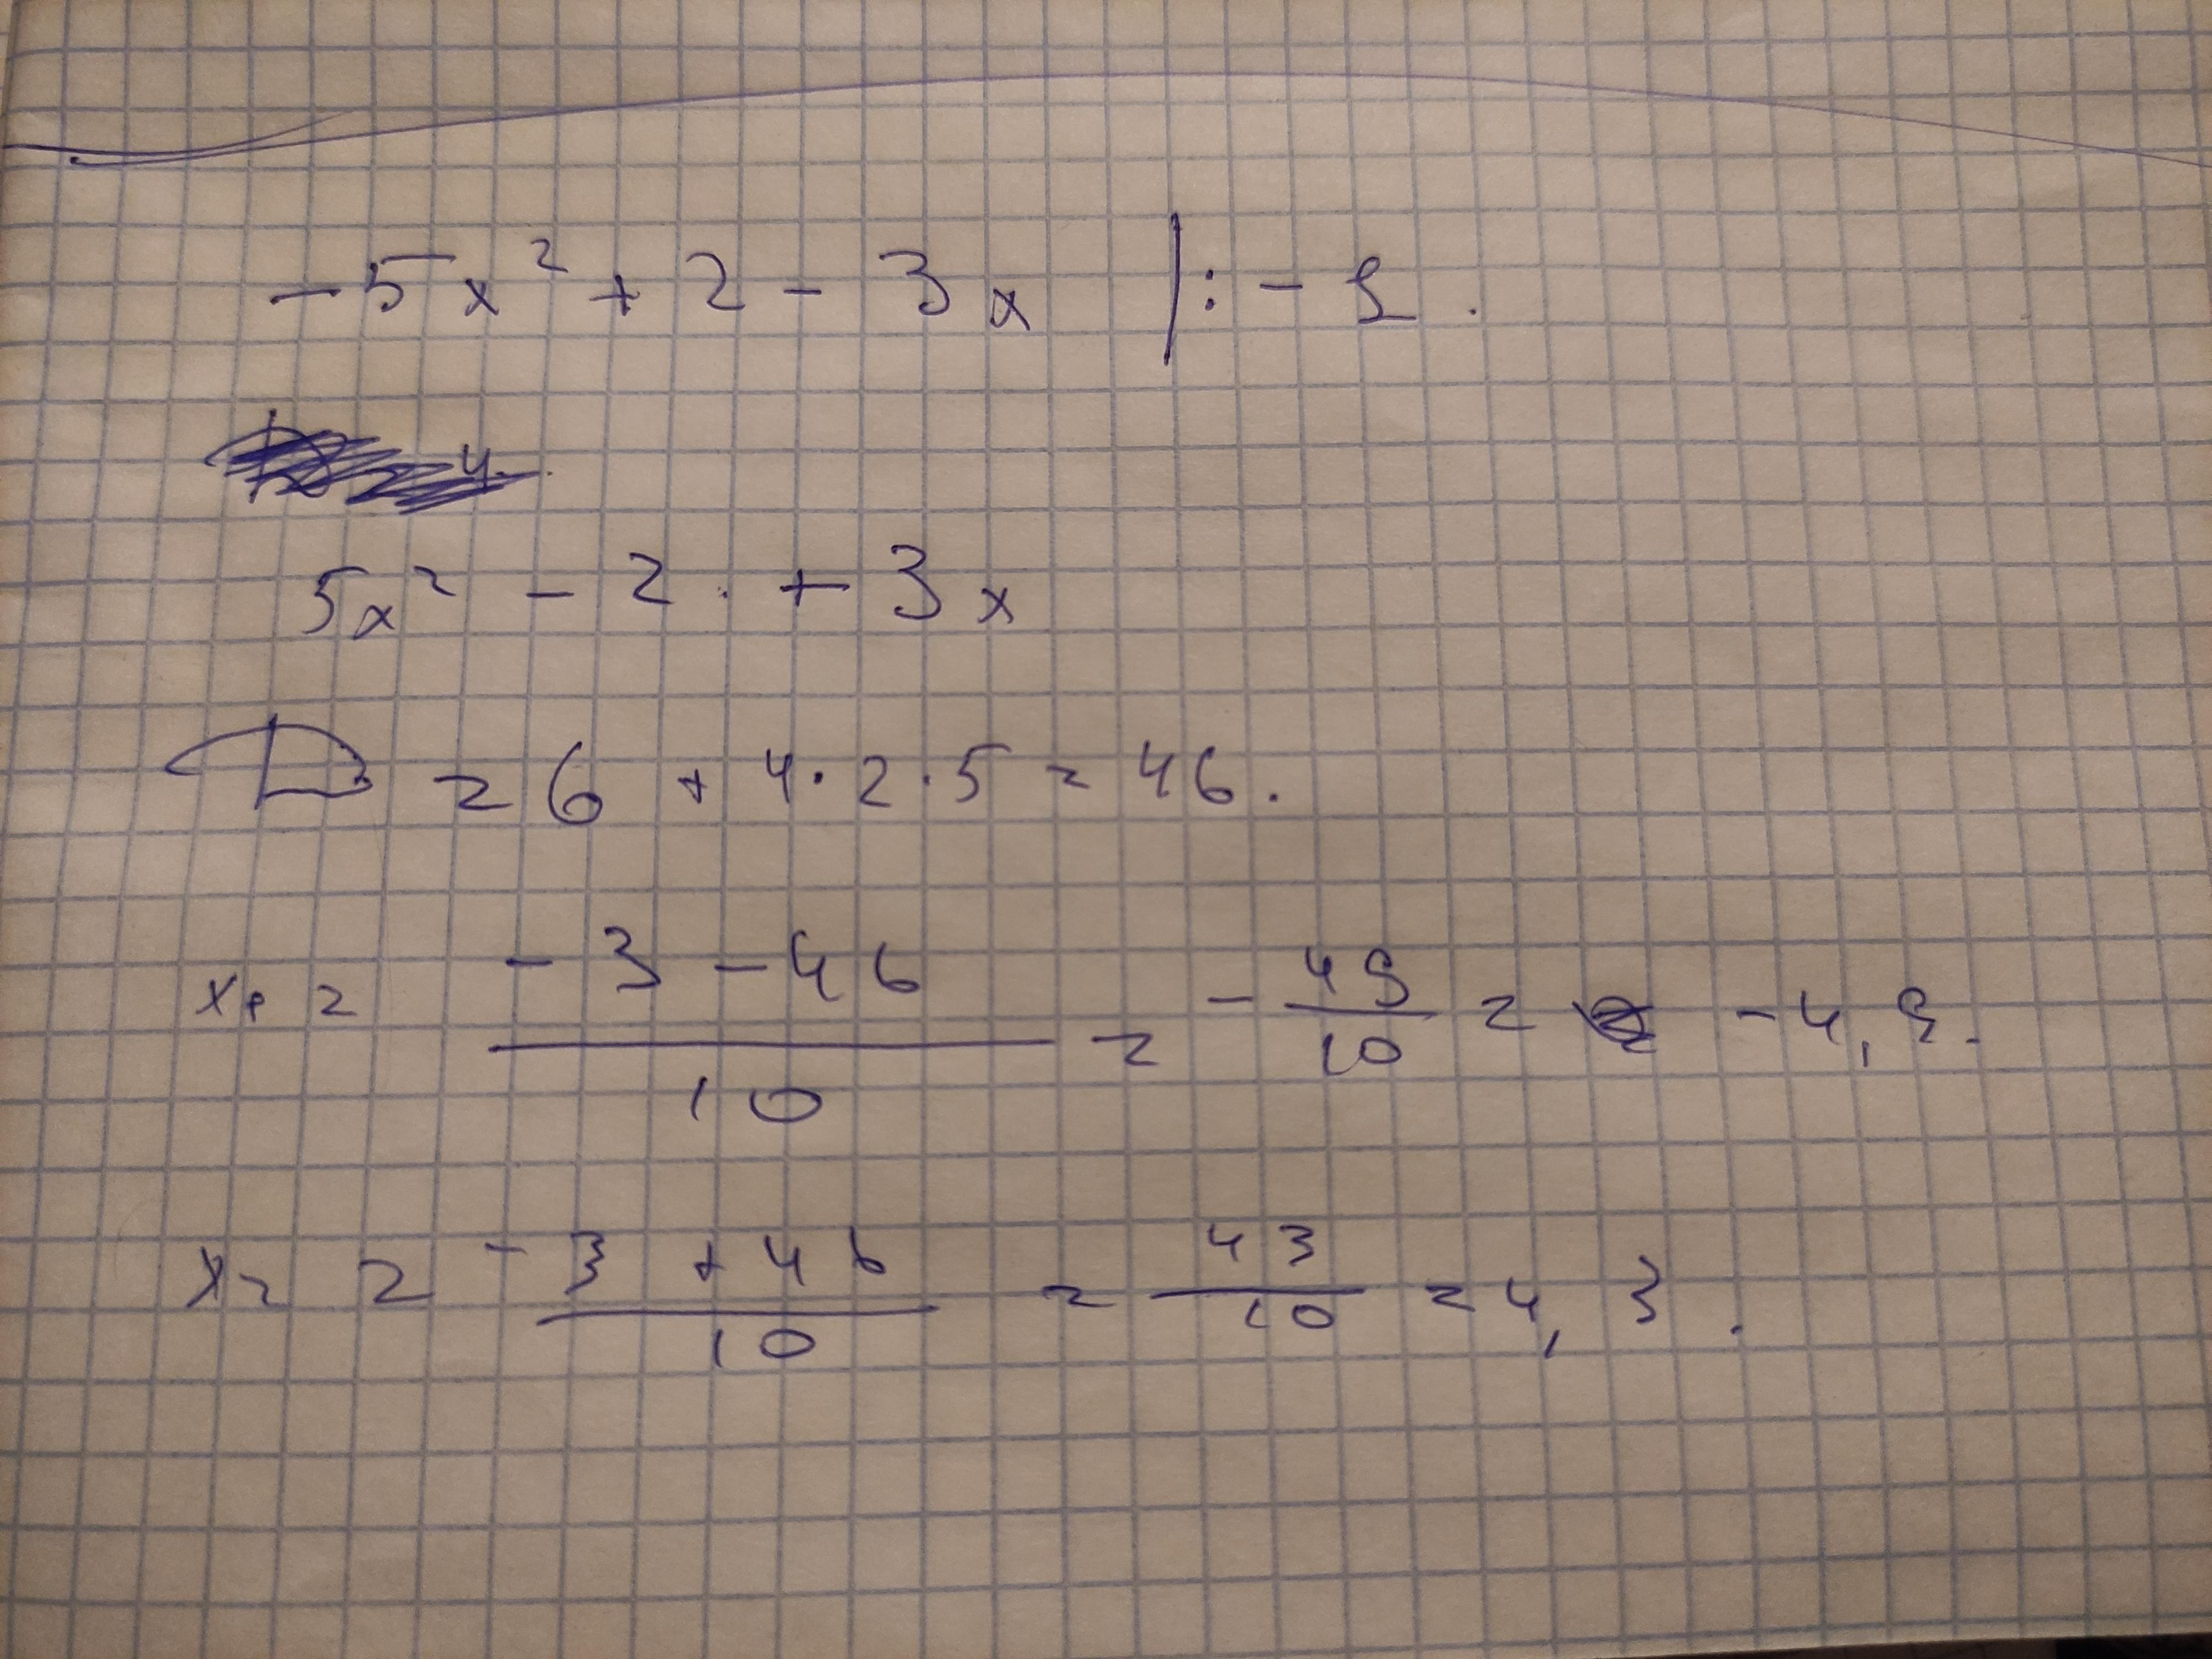 -5x² + 2 - 3x |: - 1.
5x² - 2. + 3x
D = 6 + 4 · 2 · 5 = 46.
x₁ = (-3 - 46)/10 = -49/10 = -4,9.
x₂ = (-3 + 46)/10 = 43/10 = 4,3.